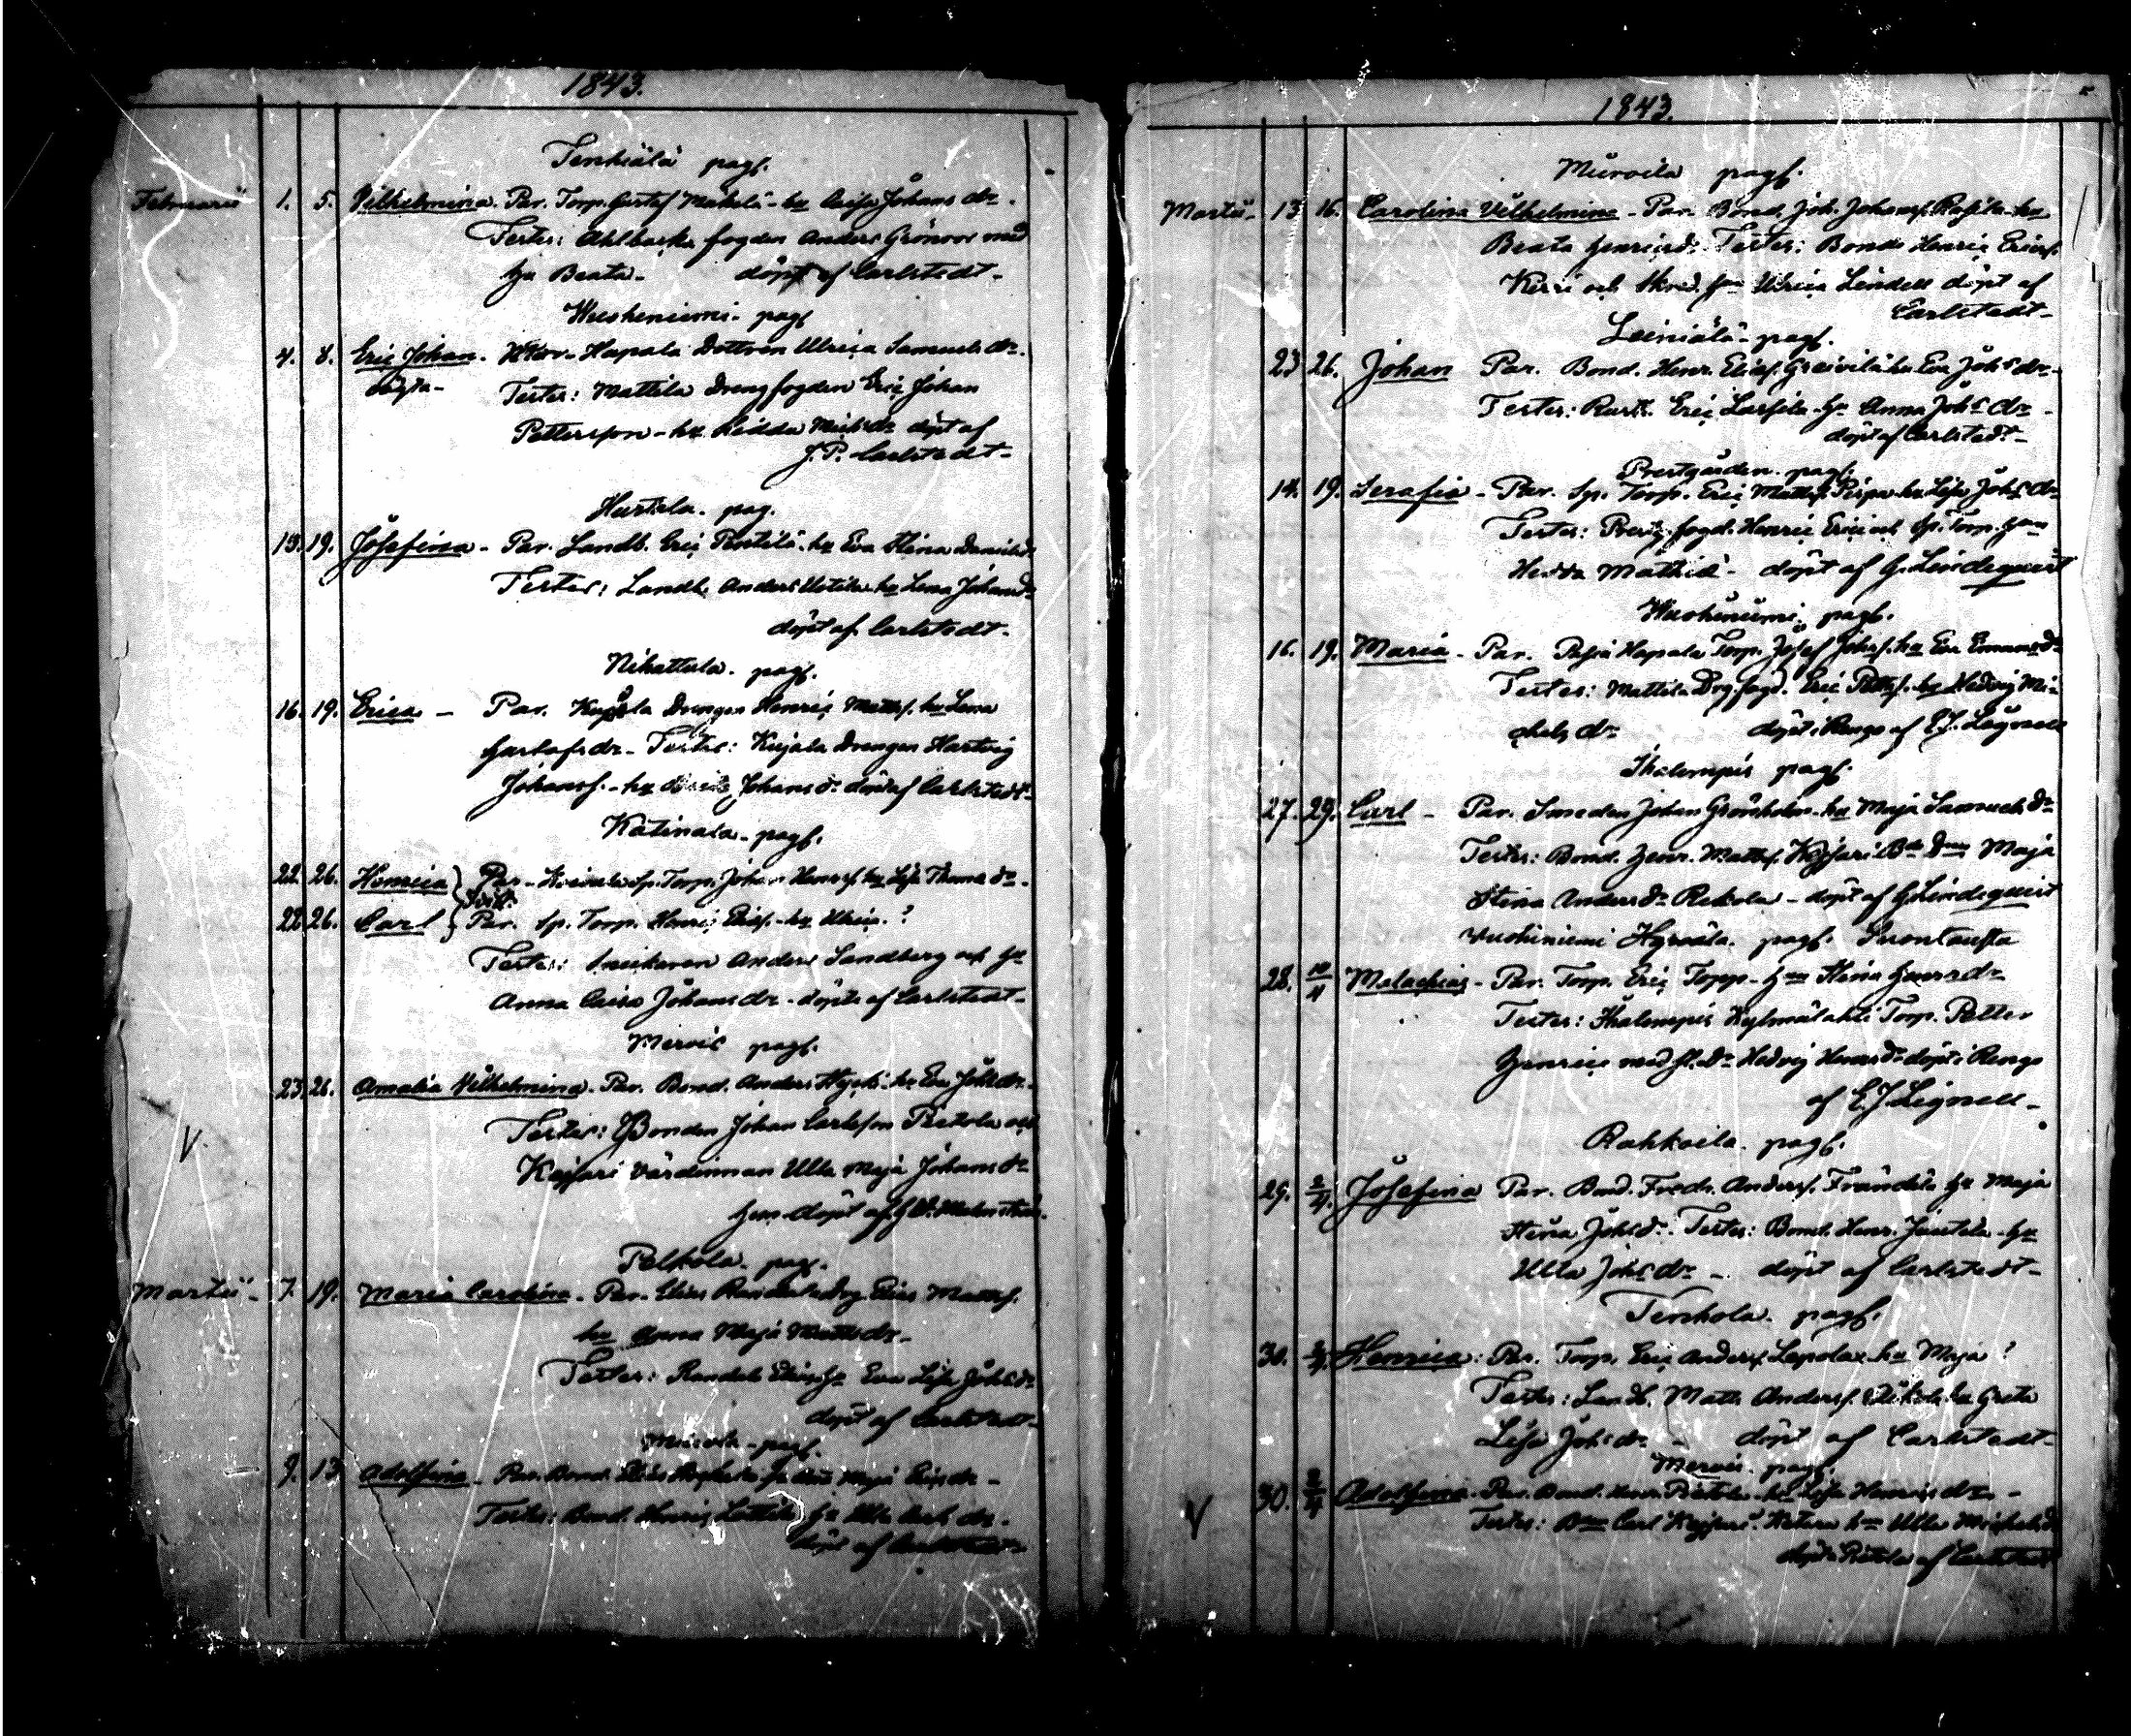 1843.
Tenhiälä pagf.
Februarii 1. 5. Vilhelmina. Par. Torp. Gustaf Makelä - hu Caisa Johans dr.
Testes: Ahlbacka fogden Anders Grönroos med
hu Beata - döpt af Carlstedt -
Wuoheniemi - pagf
4. 8. Eric Johan. Hapala Dottren Ulrica Samuels dr.
oägta - Testes: Mattila Drengfogden Eric Johan
Pettersson - hu Hedda Mich dr döpt af
J. P. Carlstedt -
Hurtala. pag.
13. 19. Josefina - Par. Landb. Eric Penttilä hu Eva Stina Daniels dr
Testes: Landb. Anders Uotila hu Lena Johans dr
döpt af Carlstedt.
Nihattula. pagf.
16. 19. Erica - Par. Kujala Drengen Henric Mattsf. hu Lena
Gustafs dr - Testes: Kujala Drengen Hartvig
Johansf. - hu Johans dr döpt af Carlstedt -
Katinala - pagf.
22. 26. Henrica Par - Sp. Torp. Johan Henrsf. hu Lisa Thomas dr -
22. 26. Carl Par. Sp. Torp. Henric Ericsf. - hu Ulrica. ?
Testes: Snickaren Anders Sandberg och hu
Anna Caisa Johans dr - döpte af Carlstedt -
Mervis pagf.
23. 26. Amalia Vilhelmina - Par. Bond. Anders hu Eva Johs dr -
Testes: Bonden Johan Carlsson Pietola och
Kejsari värdinnan Ulla Maja Johans dr
döpt af
Pelkola. pagf.
Martii - 7. 19. Maria Carolina - Par. Elias Randala Drg. Elias Mattsf.
hu Anna Maja Matts dr -
Testes: Randala Elias hu Eva Lisa Johs dr
döpt af Carlstedt -
pagf.
9. 13 Adolfina - Par. Bond. Maja dr -
Testes: Bond. Henric hu Ulla dr.
döpt af Carlstedt
1843.
Muroila pagf.
Martii - 13 16. Carolina Vilhelmina - Par. Bond. Joh. Johansf. hu
Beata Henrics dr. Testes: Bond. Henric Ericsf.
Kirri och Skred. fru Ulrica Lindell döpt af
Carlstedt -
Leiniälä - pagf.
23 26. Johan Par. Bond. Henr. Eliasf. hu Eva Johs dr -
Testes: Rusth. Eric Lassila - hu Anna Johs dr -
döpt af Carlstedt -
Prestgården - pagf.
14. 19. Serafia - Par. Sp. Torp. Eric Mattsf. hu Lisa Johs dr
Testes: Prestg. fogd. Henric Eric och Sp. Torp.
Hedda Mathiä - döpt af G. Lindequist
Wuohiniemi. pagf.
16. 19. Maria - Par. Hapala Torp. Josef Johsf. hu Eva Emans dr
Testes: Mattila Drg. fogd. Eric Pettsf. hu Hedvig Mi-
chels dr döpt i Rengo af E. J. Lignell
Ihalempis pagf.
27. 29. Carl - Par. Smeden Johan Grönholm - hu Maja Samuels dr
Testes: Bond. Henr. Mattsf. Kejsari Maja
Stina Anders dr Rekola - döpt af G. Lindequist
Wuohiniemi Hyrvälä. pagf.
28. 10/4 Malachias - Par. Torp. Eric Topp - hu Stina Henrs dr
Testes: Ihalempis Kylmälahti Torp. Petter
Henric med Hedvig Henrs dr döpt i Rengo
af E J Lignell -
Rahkoila. pagf.
29. 2/4. Josefina Par. Bond. Fredr. Andersf. Frändilä hu Maja
Stina Johs dr. Testes: Bond. Henr. Jautila - hu
Ulla Johs dr - döpt af Carlstedt -
Tenhola. pagf.
30. 2/4. Henrica: Par. Torp. Eric Andersf. Lepola hu Maja ?
Testes: Landb. Matts Andersf. hu Greta
Lisa Johs dr - döpt af Carlstedt -
Mervis - pagf.
30. 2/4 Adolfina - Par. Bond. Henr. Pietola - hu Lisa Henrics dr -
Testes: Carl Kejsari. Ulla Michels dr
döpt i Pietola af Carlstedt